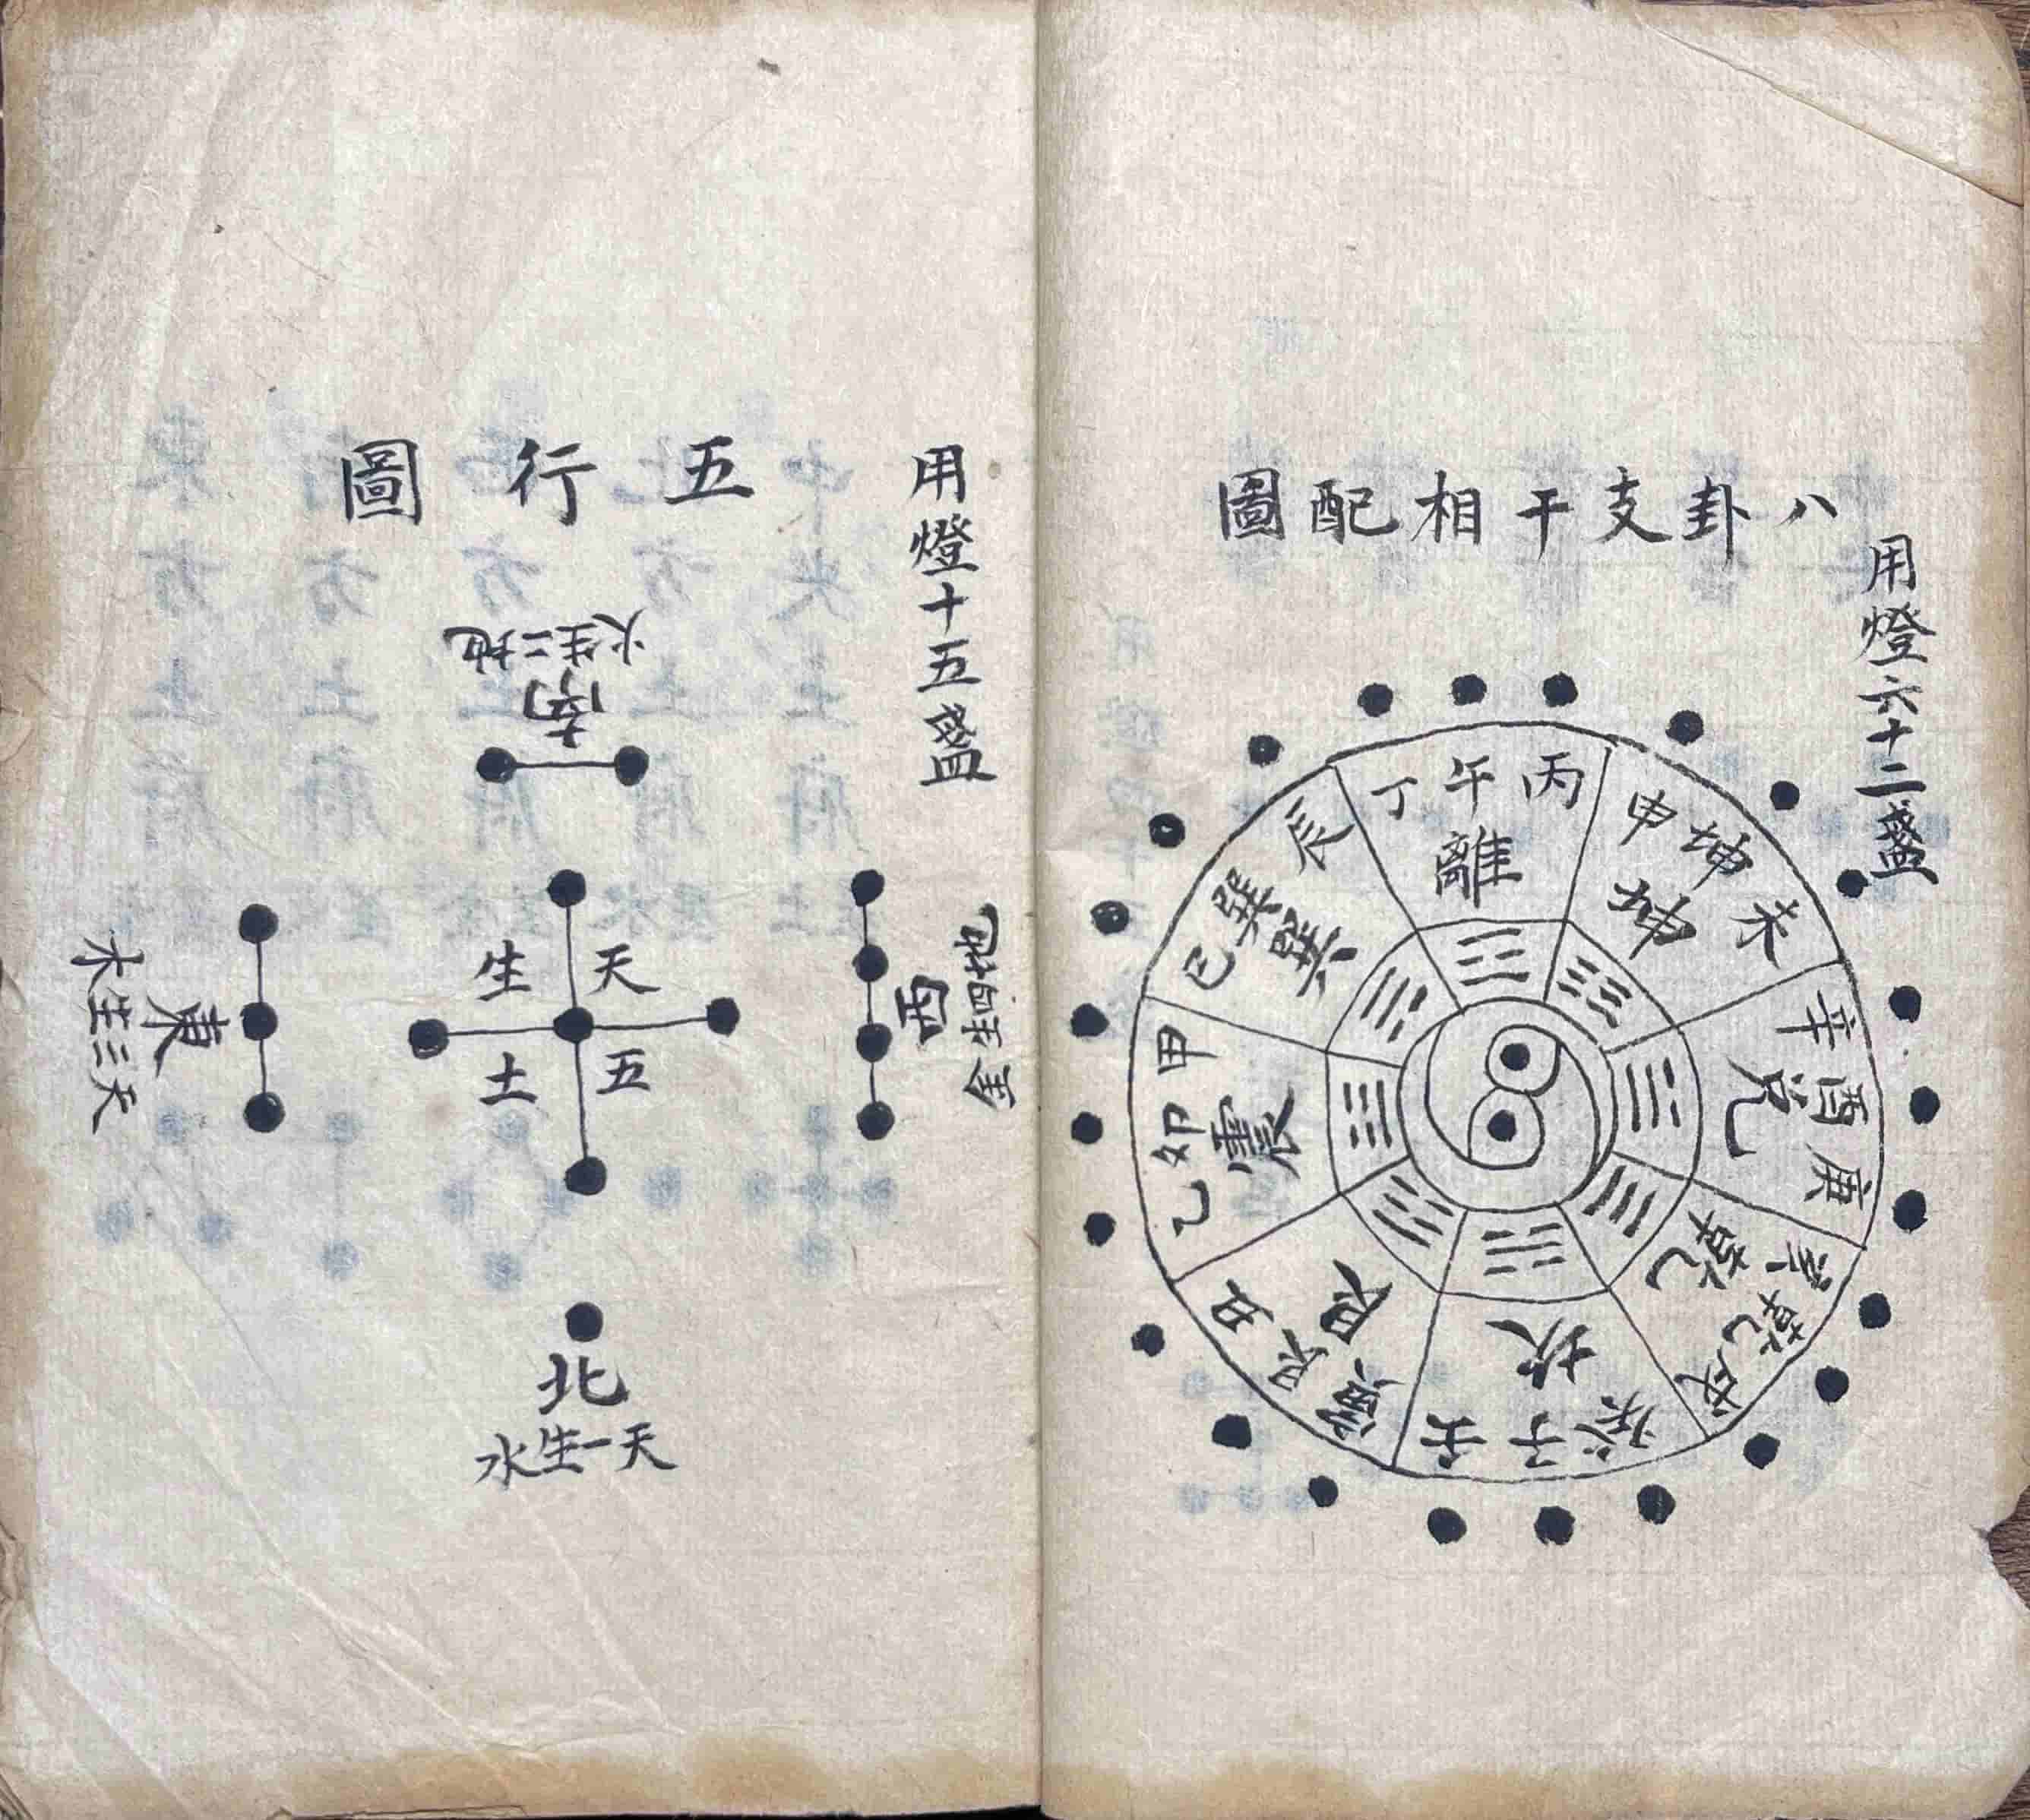 八卦支干相配圖
用燈六十二盞
丁午丙
離
申坤未
坤
辛酉庚
兌
乾
乾
壬子癸
坎
丑艮寅
艮
甲卯乙
震
辰巽巳
巽
用燈十五盞
五行圖
地二生火
南
天五
生土
西
地四生金
東
天三生木
北
天一生水